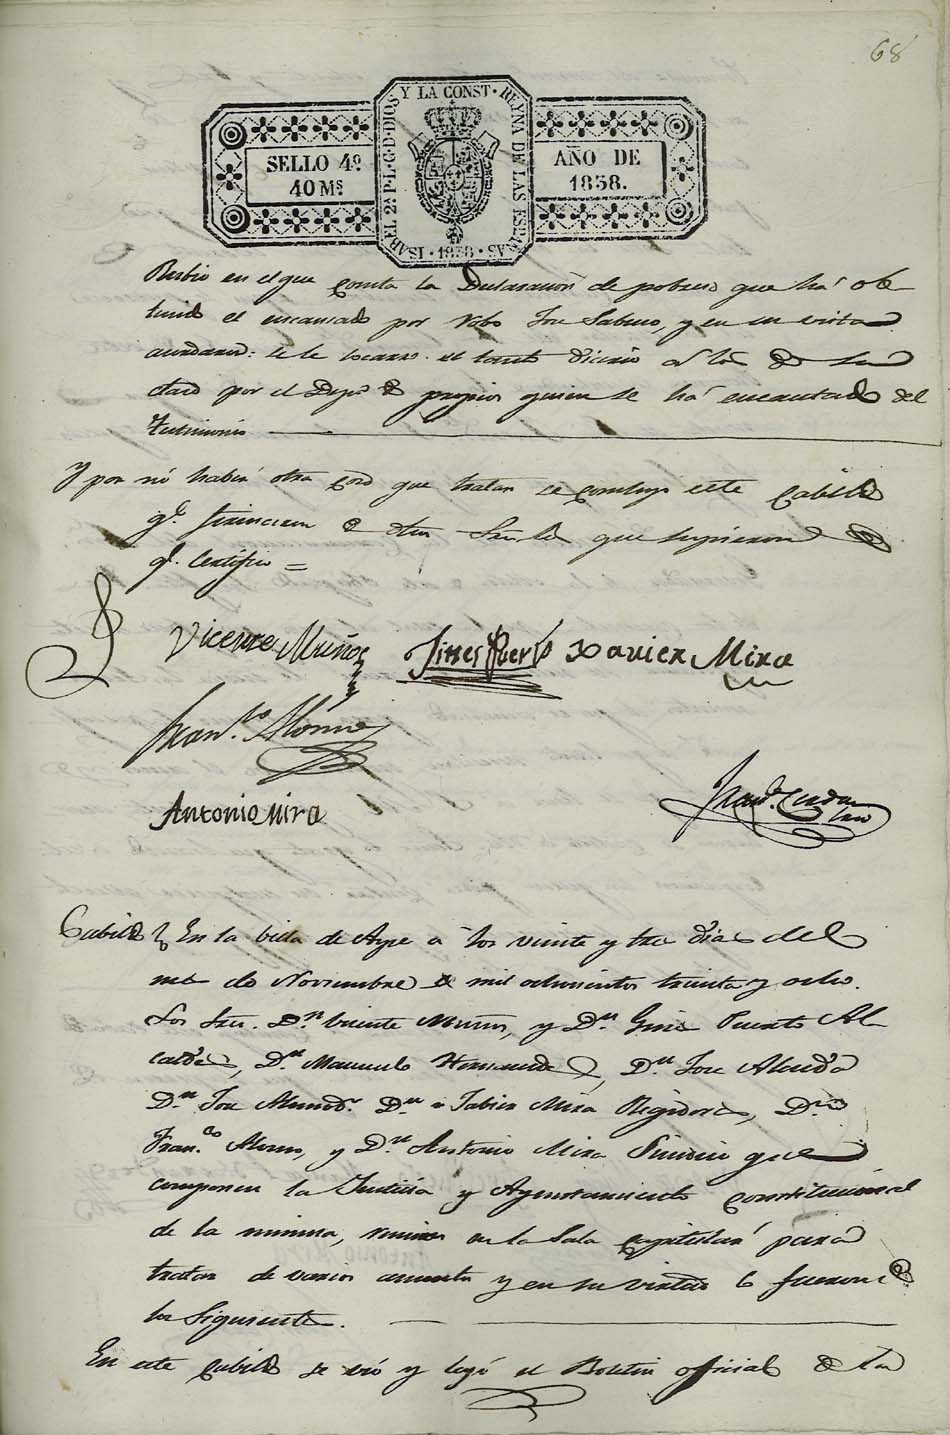 68
ISABEL 2ª P.L.G.D.DIOS Y LA CONST. REYNA DE LAS ESPAÑAS
SELLO 4º. AÑO DE
40 Mˢ 1838.
· 1838 ·
Rubio en el que consta la Declaración de pobreza que há ob-
tenido el encausado por robo José Sabuco, y en su vista
acordaron: se le socorra el tanto diario a los de su
clase por el Depº de propios quien se há encautado del
Testimonio
Y por nó haber otra cosa que tratar se concluyó este Cabildo
qe. firmaron de otros Sres. los que supieron de
qe. Certifico =
Vicente Muñoz Jines Puerto Xavier Mira
Franco. Alonso
Antonio Mira
Cabildo En la villa de Aspe a los veinte y tres dias del
mes de Noviembre de mil ochocientos treinta y ocho.
Los Sres. Dn. Vicente Muñoz, y Dn. Gines Puerto Al-
caldes, Dn. Manuel Hernandez, Dn. Jose Almodva
Dn. Jose Almodr. Dn. Jabier Mira Regidores, Dn.
Franco. Alonso, y Dn. Antonio Mira Sindico que
componen la Justicia y Ayuntamiento constitucional
de la misma, reunidos en la Sala capitular para
tratar de varios asuntos y en su virtud lo fueron
los Siguientes.
En este Cabildo se vió y leyó el Boletin oficial de la